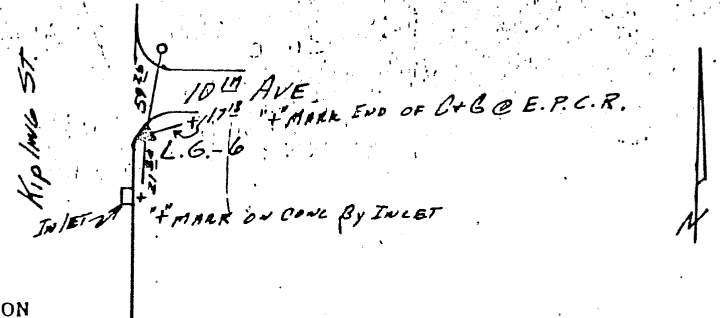 Kipling ST.
59 25
10 TH AVE
17 18 "+" MARK END OF C+G @ E.P.C.R.
L.G.-6
INLET "+" MARK ON CONC By INLET
N
ON